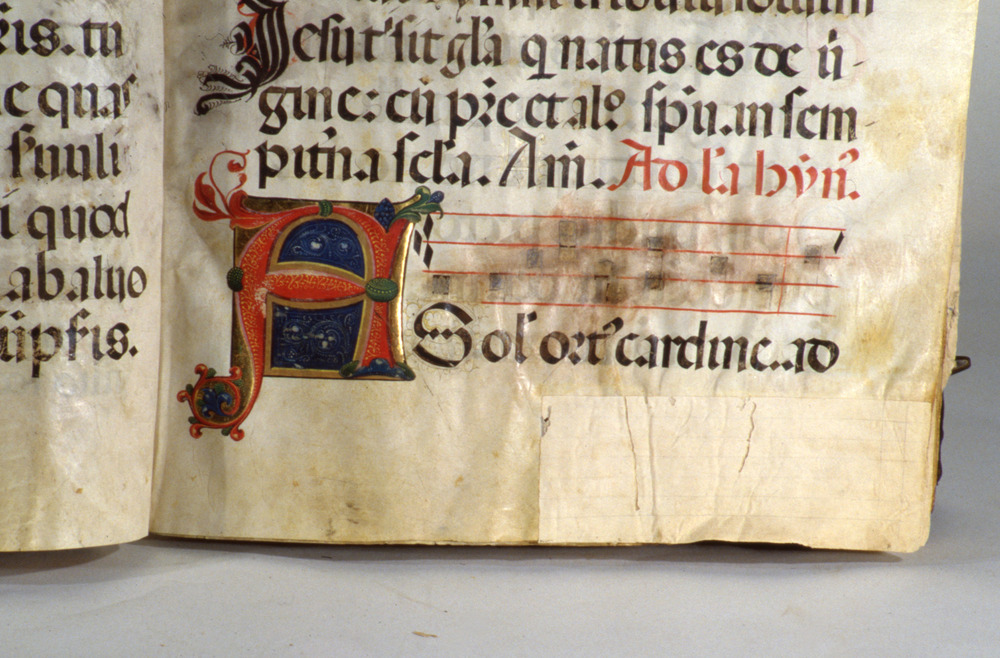 ris. tu
e quas
s'uuli
i quod
abalijo
sūipsis.
Jesu t' sit gl'a q natus es de ii-
gine: cū p̄re et alo sp̄u. in sem
pit'na sc̄l'a. Am̄. Ad l'a hȳn̄.
A Sol' ort' cardine. ad